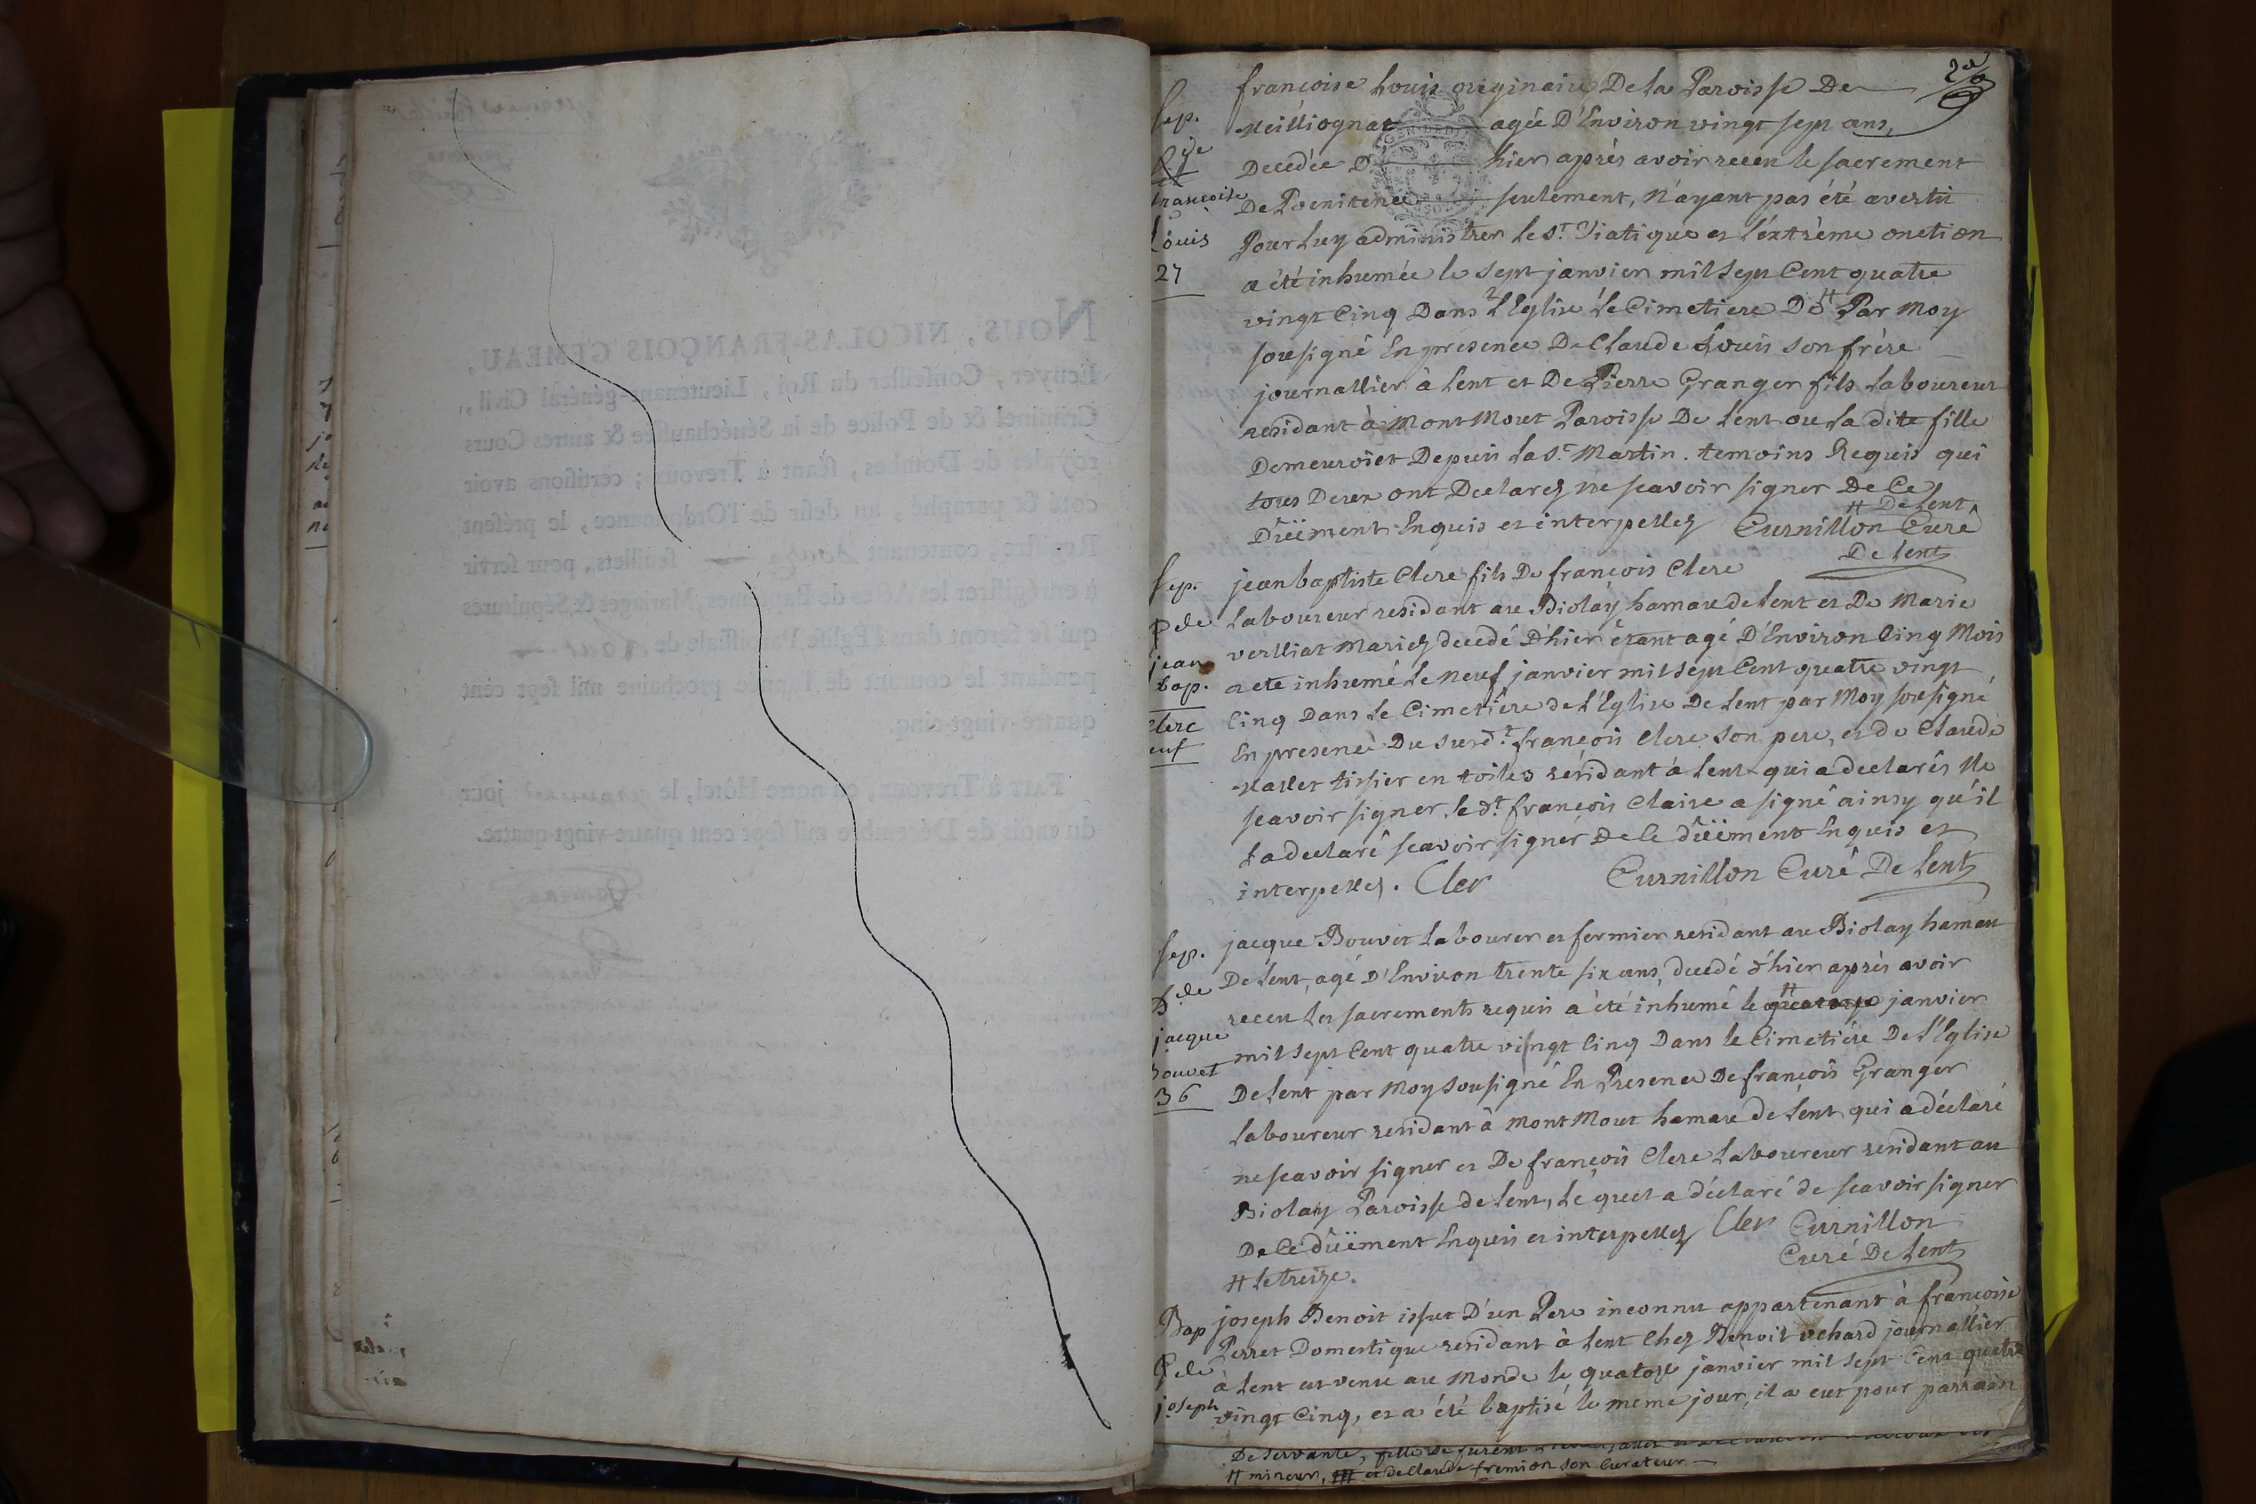 2e
françoise Louis originaire De la Paroisse De
Neilliognat agée D'Environ vingt sept ans,
Decedée D'hier après avoir receu le sacrement
De Poenitence seulement, N'ayant pas été avertit
Pour Luy administrer le St. Viatique et l'extrème onction
a été inhumée le sept janvier mil sept Cent quatre
vingt Cinq Dans L'Eglise le Cimetiere De # Par Moy
sousigné En presence De Claude Louis son frère
journallier à Lent et De Pierre Granger fils Laboureur
residant à Mont Mout Paroisse De Lent ou La dite fille
Demeuroiet Depuis la St. Martin. temoins Requis qui
tous Deux ont Declarez ne scavoir signer De Ce
# De Lent
Düëment Enquis et interpellez Curnillon Curé
De Lent
Sep.
françoise
Louis
27
Sep.
jean
bap.
Clerc
jean baptiste Clerc fils De françois Clerc
Laboureur residant au Biolay hamau de Lent et De Marie
verlliat Mariez decedé D'hier étant agé D'Environ Cinq Mois
a eté inhumé Le neuf janvier mil sept Cent quatre vingt
Cinq Dans Le Cimetière de L'Eglise De Lent par Moy sousigné
En presence Du susdt. françois Clerc son pere, et de Claude
tissier en toiles résidant à Lent qui a declarés Ne
scavoir signer, le dt. françois Claire a signé ainsy qu'il
La declaré scavoir signer De Ce düëment Enquis et
interpellez. Cler Curnillon Curé De Lent
Sep.
jacque
Bouvet
36
jacque Bouvet Labourer et fermier residant au Biolay hamau
De Lent, agé D'Environ trente six ans, decedé d'hier après avoir
receu les sacrements requis a été inhumé le # quatorze janvier
mil sept Cent quatre vingt Cinq Dans le Cimetière De l'Eglise
De Lent par Moy sousigné En Presence De françois Granger
Laboureur residant à Mont Mout hamau de Lent qui a déclaré
ne scavoir signer et De françois Clerc Laboureur residant au
Biolay Paroisse de Lent, Le quel a déclaré de scavoir signer
De Ce düëment Enquis et interpellez Cler Curnillon
Curé De Lent
# le treize.
Bap
joseph
joseph Benoit issut D'un Pere inconnu appartenant à françoise
Perret Domestique residant à Lent Chez Benoit vehard journallier
à Lent est venu au Monde le quatorze janvier mil sept Cent quatre
vingt Cinq, et a été baptisé le meme jour, il a eut pour parrain
De Servante, fille De
# mineur, et de Claude fremion son Curateur
NOUS, NICOLAS-FRANÇOIS GEMEAU,
Ecuyer, Conseiller du Roi, Lieutenant-général Civil,
Criminel & de Police de la Sénéchaussée & autres Cours
royales de Dombes, séant à Trevoux; certifions avoir
coté & paraphé, au desir de l'Ordonnance, le présent
Registre, contenant Douze feuillets, pour servir
à enrégistrer les Actes de Baptêmes, Mariages & Sépultures
qui se feront dans l'Eglise Paroissiale de
pendant le courant de l'année prochaine mil sept cent
quatre-vingt-cinq.
FAIT à Trevoux, en notre Hôtel, le jour
du mois de Décembre mil sept cent quatre-vingt-quatre.